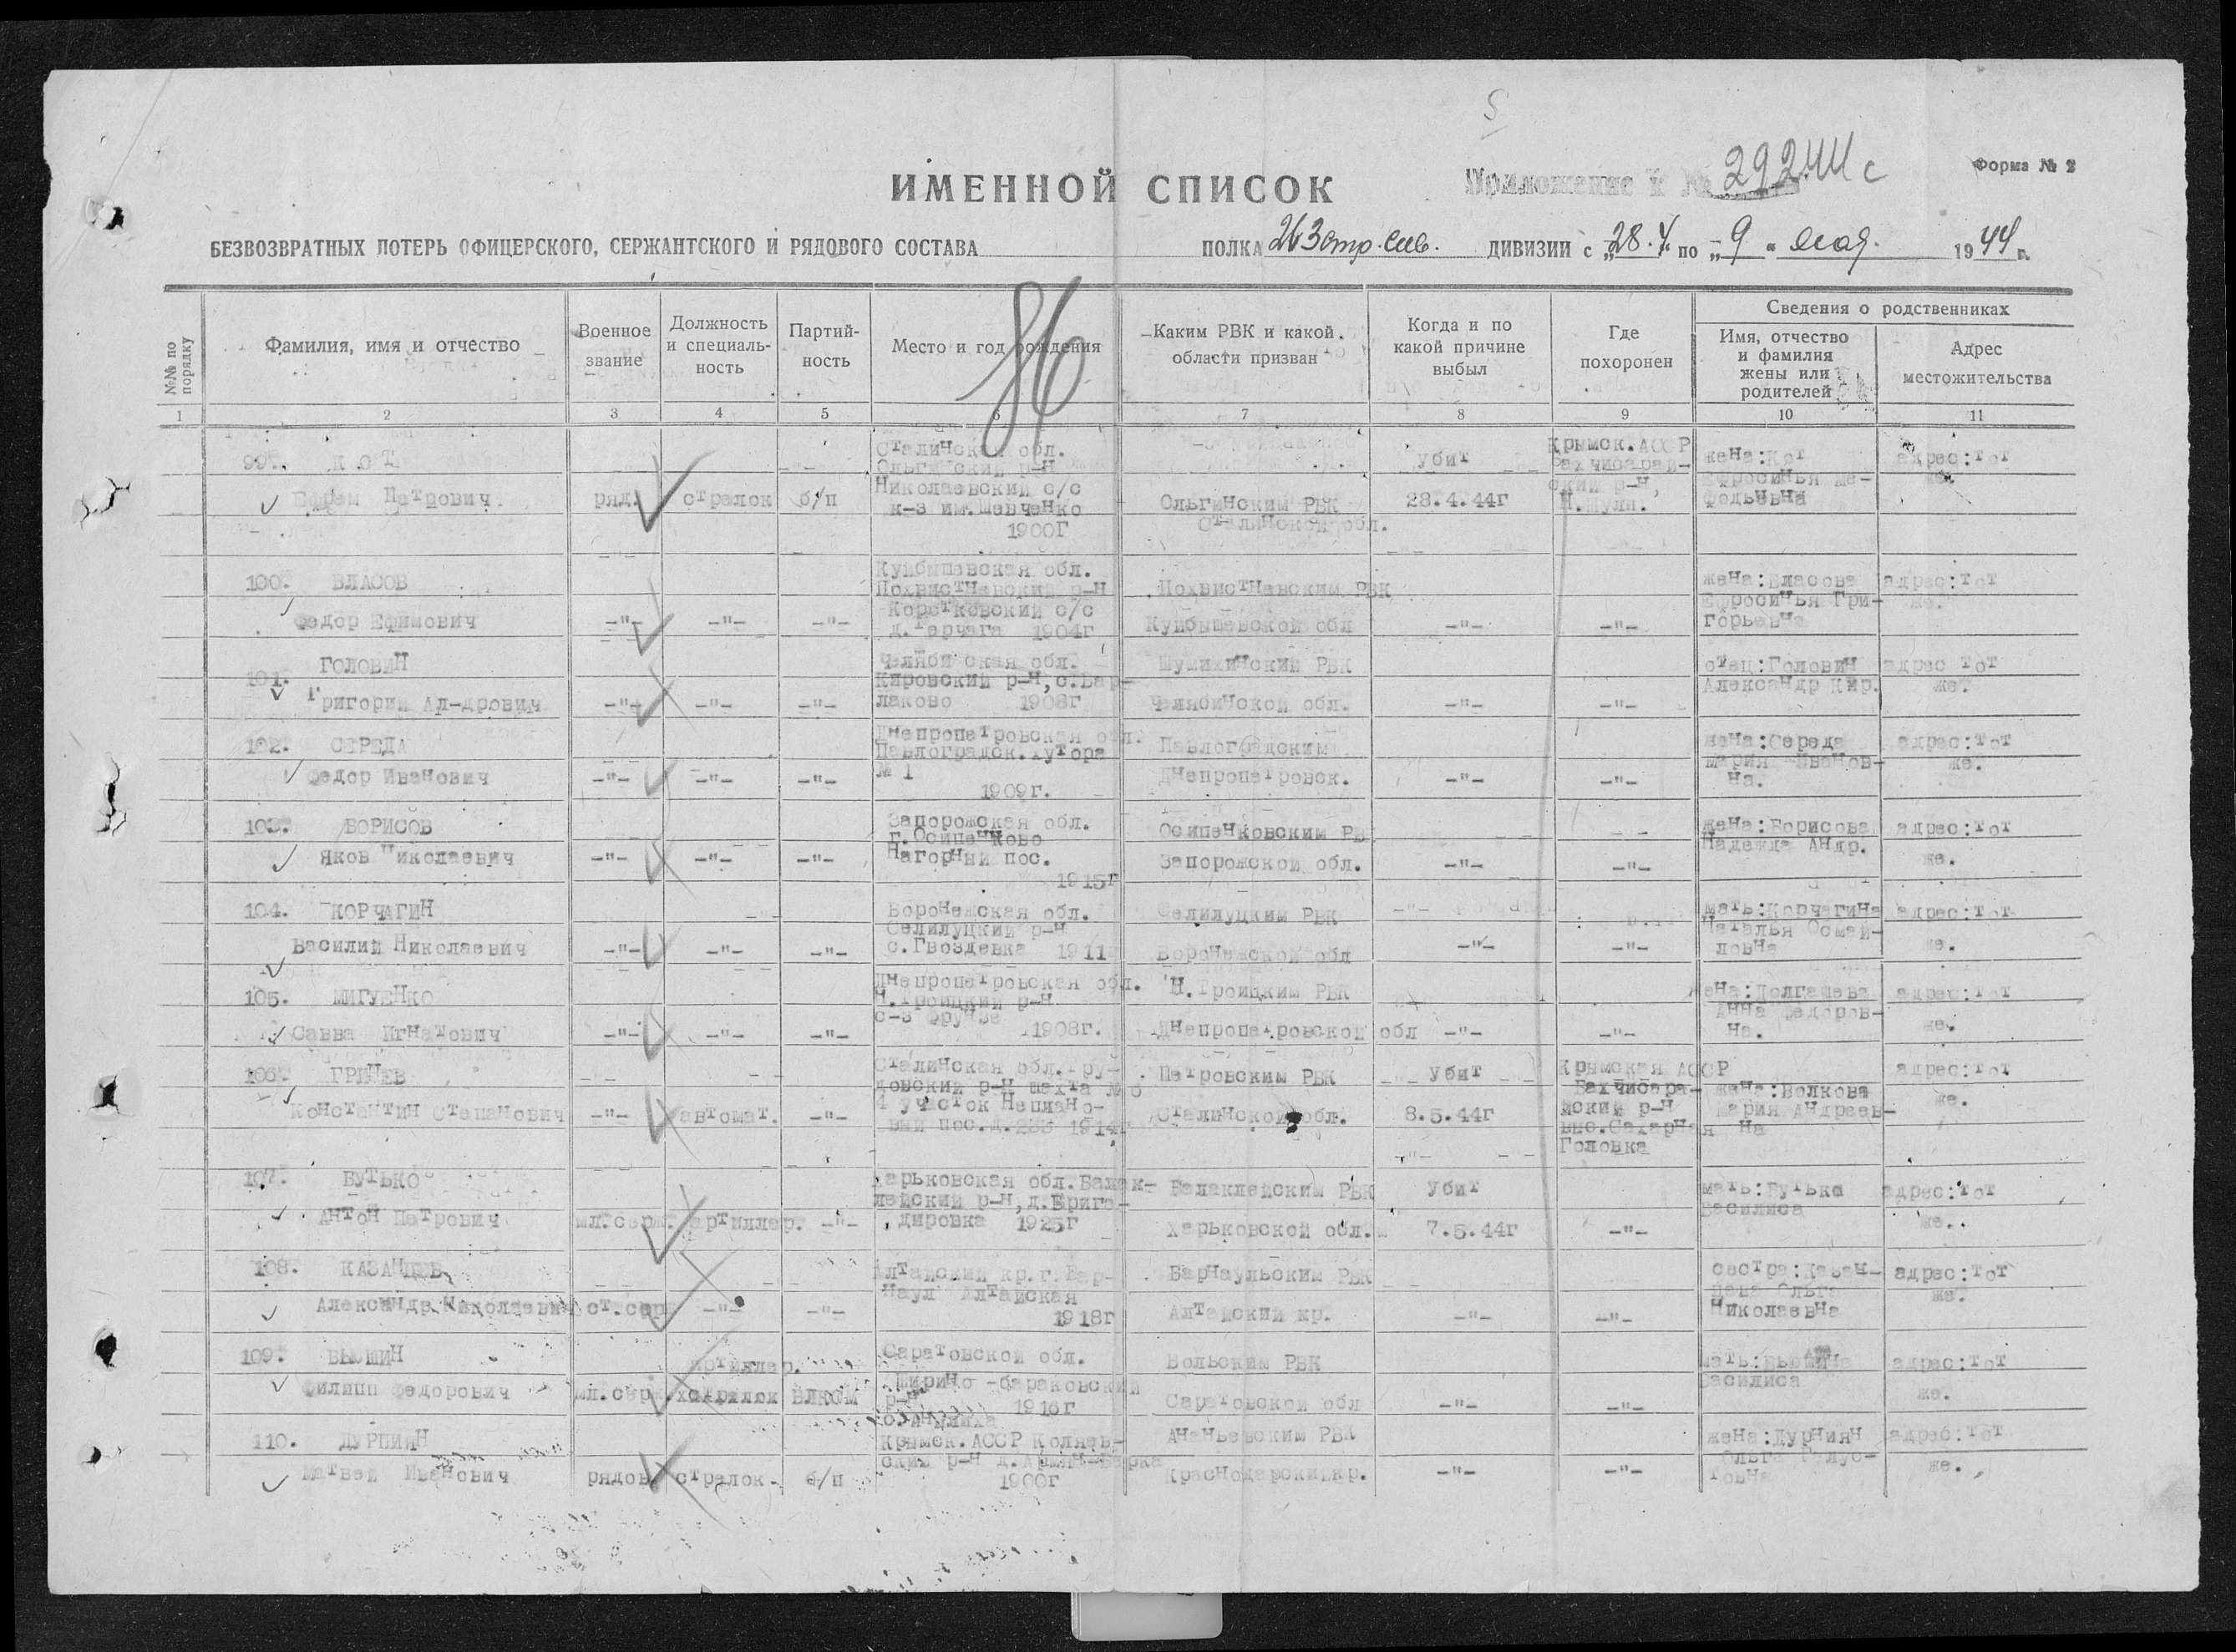 S
ИМЕННОЙ СПИСОК
Приложение к № 29244с
Форма № 2
БЕЗВОЗВРАТНЫХ ПОТЕРЬ ОФИЦЕРСКОГО, СЕРЖАНТСКОГО И РЯДОВОГО СОСТАВА ПОЛКА 263 стр. сив. ДИВИЗИИ с „28.4. по „9" мая. 1944 г.
86
№№ по порядку
Фамилия, имя и отчество
Военное звание
Должность и специаль-ность
Партий-ность
Место и год рождения
Каким РВК и какой области призван
Когда и по какой причине выбыл
Где похоронен
Сведения о родственниках
Имя, отчество и фамилия жены или родителей
Адрес местожительства
1 2 3 4 5 6 7 8 9 10 11
99. КОТ Сталинская обл. убит Крымск.АССР жена:Кот адрес:тот
Ольгинский р-н Бахчисарай- Ефросинья Ме- же.
Ефрем Петрович. ряд. стрелок б/п Николаевский с/с Ольгинским РВК 28.4.44г ский р-н, фодьевна
к-з им.Шевченко Сталинской обл. Н.Шули.
1900г
100. ВЛАСОВ Куйбышевская обл. Похвистневским РВК жена:Власова адрес:тот
Похвистневский р-н Ефросинья Гри- же.
Федор Ефимович -"- -"- -"- Коротковский с/с Куйбышевской обл -"- -"- горьевна
1904г
101. ГОЛОВИН Челябинская обл. Шумихинский РВК отец:Головин адрес тот
Кировский р-н,с.Вар- Александр Кир. же.
Григорий Ал-дрович -"- -"- -"- лаково 1908г Челябинской обл. -"- -"-
102. СЕРЕДА Днепропетровская обл. Павлоградским жена:Середа адрес:тот
Павлоградск.хутора Мария Иванов- же.
Федор Иванович -"- -"- -"- № 1 Днепропетровск. -"- -"- на.
1909г.
103. БОРИСОВ Запорожская обл. Осипенковским РВ жена:Борисова адрес:тот
г.Осипенково Надежда Андр.
Яков Николаевич -"- -"- -"- Нагорный пос. Запорожской обл. -"- -"- же.
1915г
104. КОРЧАГИН Воронежская обл. Селилуцким РВК мать:Корчагина адрес:тот
Селилуцкий р-н Наталья Осмай-
Василий Николаевич -"- -"- -"- с.Гвоздевка 1911 Воронежской обл -"- -"- ловна же.
105. МИГУЕНКО Днепропетровская обл. Н.Троицким РВК жена:Долгашева адрес:тот
Н.Троицкий р-н Анна Федоров-
Савва Игнатович -"- -"- -"- с-з Фрунзе 1908г. Днепропетровской обл -"- -"- на. же.
106. ГРИНЕВ Сталинская обл.Тру- Петровским РВК убит Крымская АССР адрес:тот
довский р-н шахта № Бахчисара- жена:Волкова же.
Константин Степанович -"- автомат. -"- 4 участок Неплано- Сталинской обл. 8.5.44г йский р-н Мария Андреев-
вый пос. 1914г выс.Сахарная на
Головка
107. БУТЬКО Харьковская обл.Балак- Балаклейским РВК убит мать:Бутько адрес:тот
лейский р-н,д.Брига- Василиса
Антон Петрович мл.серж. артиллер. -"- дировка 1925г Харьковской обл. 7.5.44г -"- же.
108. КАЗАНЦЕВ Алтайский кр.г.Бар- Барнаульским РВК сестра:Казан- адрес:тот
наул Алтайская цева Ольга же.
Александр Николаевич ст.серж -"- -"- 1918г Алтайский кр. -"- -"- Николаевна
109. ВЬЮШИН артиллер. Саратовской обл. Вольским РВК мать:Вьюшина адрес:тот
Ширино-бараковский Василиса
Филипп Федорович мл.серж. ВЛКСМ р-н 1916г Саратовской обл -"- -"- же.
110. ДУРНИЯН Крымск.АССР Колязь- Ананьевским РВК жена:Дурниян адрес:тот
ский р-н Ольга
Матвей Иванович рядов. стрелок б/п 1900г Краснодарский кр. -"- -"- товна же.